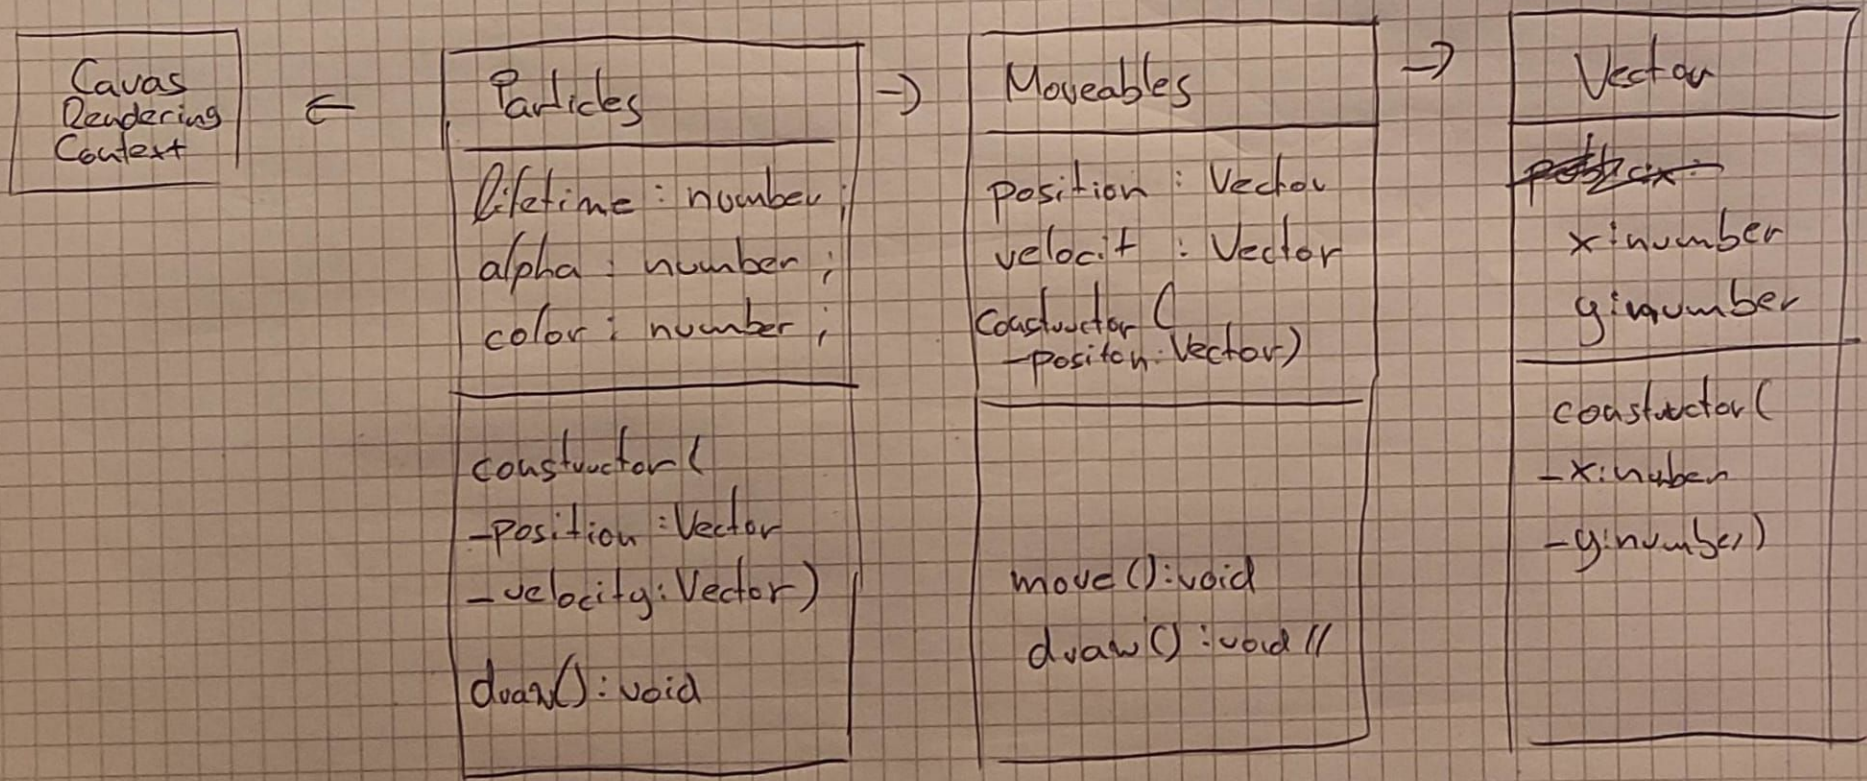 Cavas
Rendering
Context
←
Particles
lifetime : number ;
alpha : number ;
color : number ;
constructor (
-position : Vector
-velocity : Vector)
draw() : void
→
Moveables
position : Vector
velocit : Vector
constructor (
-positon : Vector)
move () : void
draw () : void //
→
Vector
x : number
y : number
constructor (
-x : nuber
-y : number)